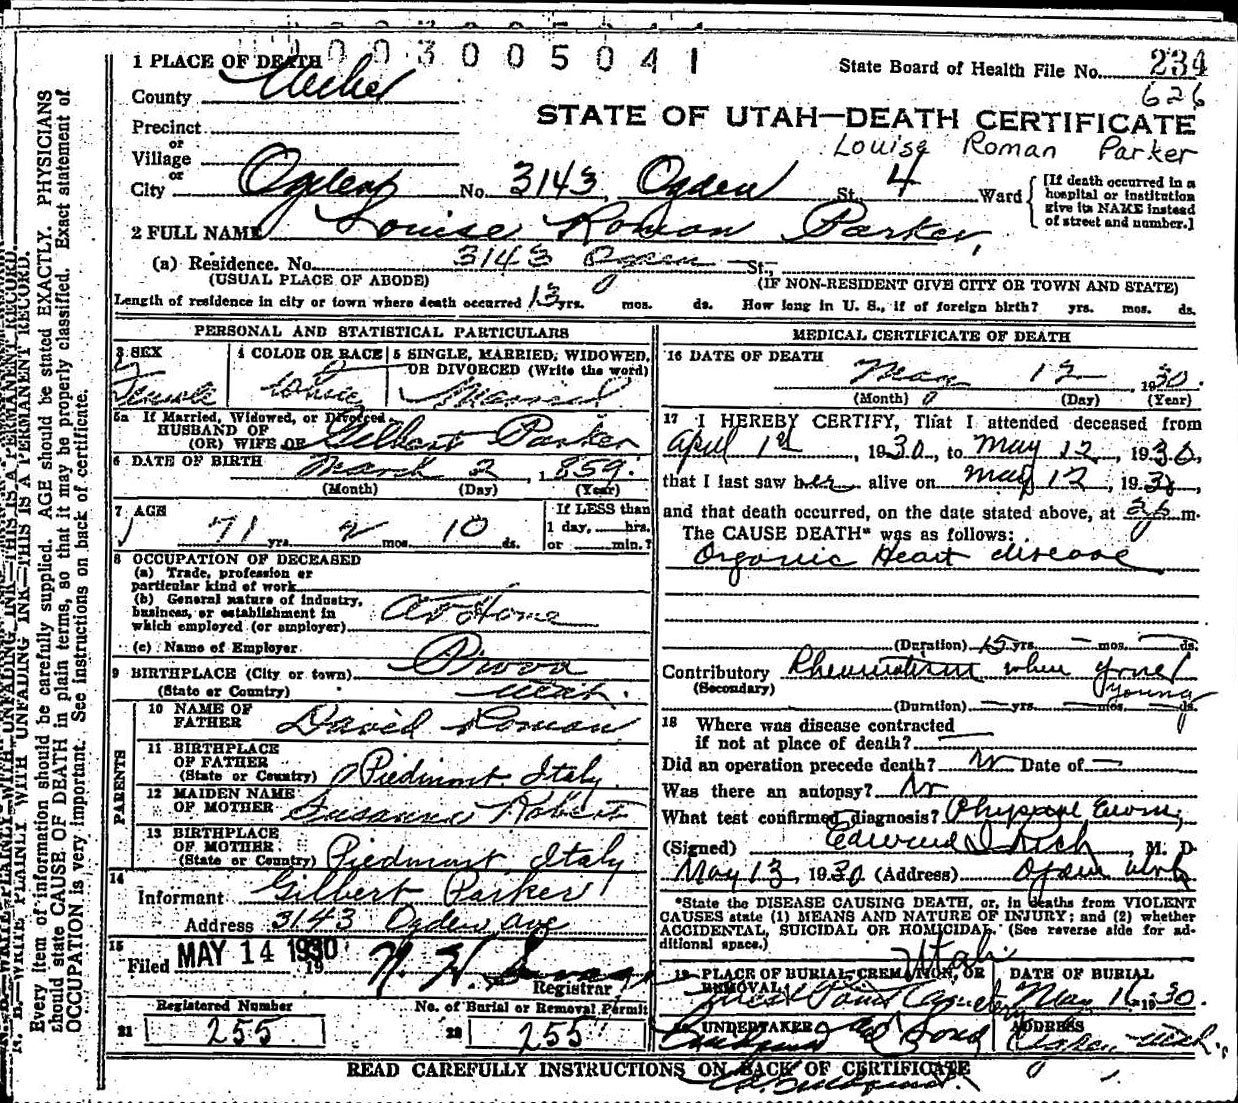 1003005041
1 PLACE OF DEATH
State Board of Health File No. 234
626
County Weber
STATE OF UTAH—DEATH CERTIFICATE
Precinct
or
Louise Roman Parker
Village
or
City Ogden No. 3143 Ogden St. 4 Ward
[If death occurred in a hospital or institution give its NAME instead of street and number.]
2 FULL NAME Louise Roman Parker,
(a) Residence. No. 3143 Ogden St.,
(USUAL PLACE OF ABODE) (IF NON-RESIDENT GIVE CITY OR TOWN AND STATE)
Length of residence in city or town where death occurred 13 yrs. mos. ds. How long in U. S., if of foreign birth? yrs. mos. ds.
PERSONAL AND STATISTICAL PARTICULARS
3 SEX Female
4 COLOR OR RACE White
5 SINGLE, MARRIED, WIDOWED, OR DIVORCED (Write the word) Married
5a If Married, Widowed, or Divorced
HUSBAND OF
(OR) WIFE OF Gilbert Parker
6 DATE OF BIRTH March 2, 1859
(Month) (Day) (Year)
7 AGE 71 yrs. 2 mos. 10 ds.
If LESS than
1 day, hrs.
or min.?
8 OCCUPATION OF DECEASED
(a) Trade, profession or
particular kind of work
(b) General nature of industry,
business, or establishment in
which employed (or employer) At Home
(c) Name of Employer
9 BIRTHPLACE (City or town) Provo
(State or Country) Utah.
PARENTS
10 NAME OF
FATHER David Roman
11 BIRTHPLACE
OF FATHER
(State or Country) Piedmont Italy
12 MAIDEN NAME
OF MOTHER Susanna Robert
13 BIRTHPLACE
OF MOTHER
(State or Country) Piedmont, Italy
14
Informant Gilbert Parker
Address 3143 Ogden Ave
15
Filed MAY 14 1930 19
Registrar
Registered Number No. of Burial or Removal Permit
21 255 22 255
MEDICAL CERTIFICATE OF DEATH
16 DATE OF DEATH
May 12 1930.
(Month) (Day) (Year)
17 I HEREBY CERTIFY, That I attended deceased from
April 1st, 1930, to May 12, 1930,
that I last saw her alive on May 12, 1930,
and that death occurred, on the date stated above, at 2 p m.
The CAUSE DEATH* was as follows:
Organic Heart disease
(Duration) 15 yrs. — mos. — ds.
Contributory Rheumatism when
(Secondary) young
(Duration) — yrs. — mos. — ds.
18 Where was disease contracted
if not at place of death? —
Did an operation precede death? No Date of —
Was there an autopsy? No
What test confirmed diagnosis? Physical Exam;
(Signed) Edward I Rich, M. D.
May 13, 1930 (Address) Ogden Utah
*State the DISEASE CAUSING DEATH, or, in deaths from VIOLENT
CAUSES state (1) MEANS AND NATURE OF INJURY; and (2) whether
ACCIDENTAL, SUICIDAL OR HOMICIDAL. (See reverse side for additional space.)
Utah
19 PLACE OF BURIAL, CREMATION, OR REMOVAL
Cemetery
DATE OF BURIAL
May 16 1930.
20 UNDERTAKER
& Sons
ADDRESS
Ogden Utah.
READ CAREFULLY INSTRUCTIONS ON BACK OF CERTIFICATE
N. B.—WRITE PLAINLY WITH UNFADING INK—THIS IS A PERMANENT RECORD.
Every item of information should be carefully supplied. AGE should be stated EXACTLY. PHYSICIANS
should state CAUSE OF DEATH in plain terms, so that it may be properly classified. Exact statement of
OCCUPATION is very important. See instructions on back of certificate.